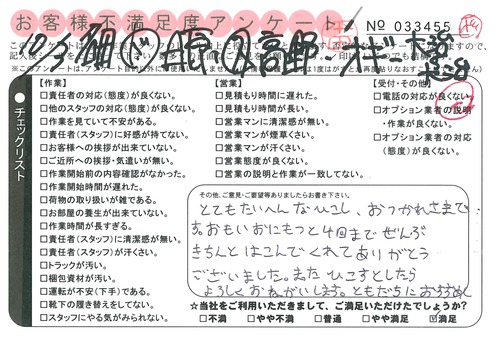 お客様不満足度アンケート
No 033455
【作業】
□責任者の対応(態度)が良くない。
□他のスタッフの対応(態度)が良くない。
□作業を見ていて不安がある。
□責任者(スタッフ)に好感が持てない。
□お客様への挨拶が出来ていない。
□ご近所への挨拶・気遣いが無い。
□作業開始前の内容確認がなかった。
□作業開始時間が遅れた。
□荷物の取り扱いが雑である。
□お部屋の養生が出来ていない。
□作業時間が長すぎる。
□責任者(スタッフ)に清潔感が無い。
□責任者(スタッフ)が汗くさい。
□トラックが汚い。
□梱包資材が汚い。
□運転が不安(下手)である。
□靴下の履き替えをしてない。
□スタッフにやる気がみられない。
【営業】
□見積もり時間に遅れた。
□見積もり時間が長い。
□営業マンに清潔感が無い。
□営業マンが煙草くさい。
□営業マンが汗くさい。
□営業態度が良くない。
□営業の説明と作業が一致してない。
【受付・その他】
□電話の対応が良くない
□オプション業者の説明
・作業が良くない。
□オプション業者の対応
(態度)が良くない。
チェックリスト
その他、ご意見・ご要望等ありましたらお書き下さい。
とてもたいへんなひこし、おつかれさまで
す。おもいおにもつを4回までぜんぶ
きちんとはこんでくれてありがとう
ございました。またひこすとしたら
よろしくおねがいします。ともだちにおすすめ
☆当社をご利用いただきまして、ご満足いただけましたでしょうか?
□不満 □やや不満 □普通 □やや満足 ☑満足